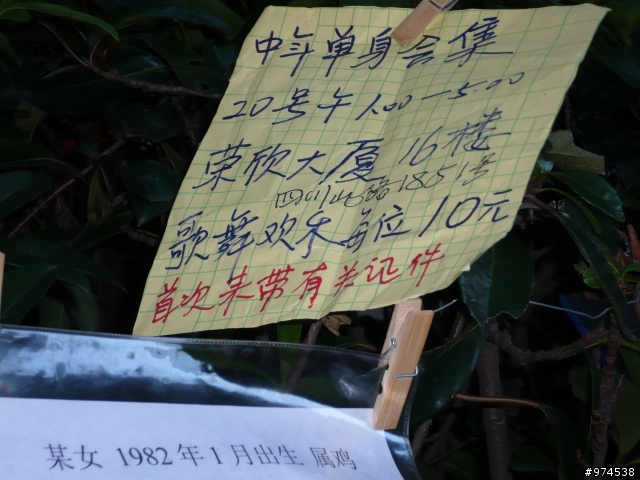 中年单身会集
20号午1.00—5.00
荣欣大厦16楼
四川北路1851号
歌舞欢乐每位10元
首次来带有关证件
某女 1982年1月出生 属鸡
#974538